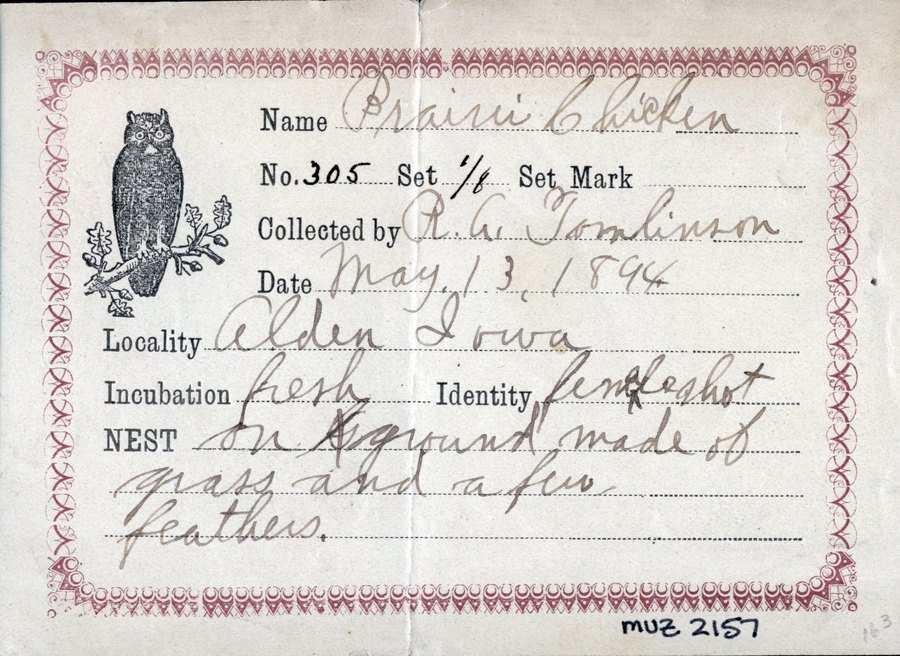 Name Prairii Chicken
No. 305 Set 1/8 Set Mark
Collected by R. A. Tomlinson
Date May. 13, 1894
Locality Alden Iowa
Incubation fresh Identity female shot
NEST on ground made of
grass and a few
feathers.
MUZ 2157
163